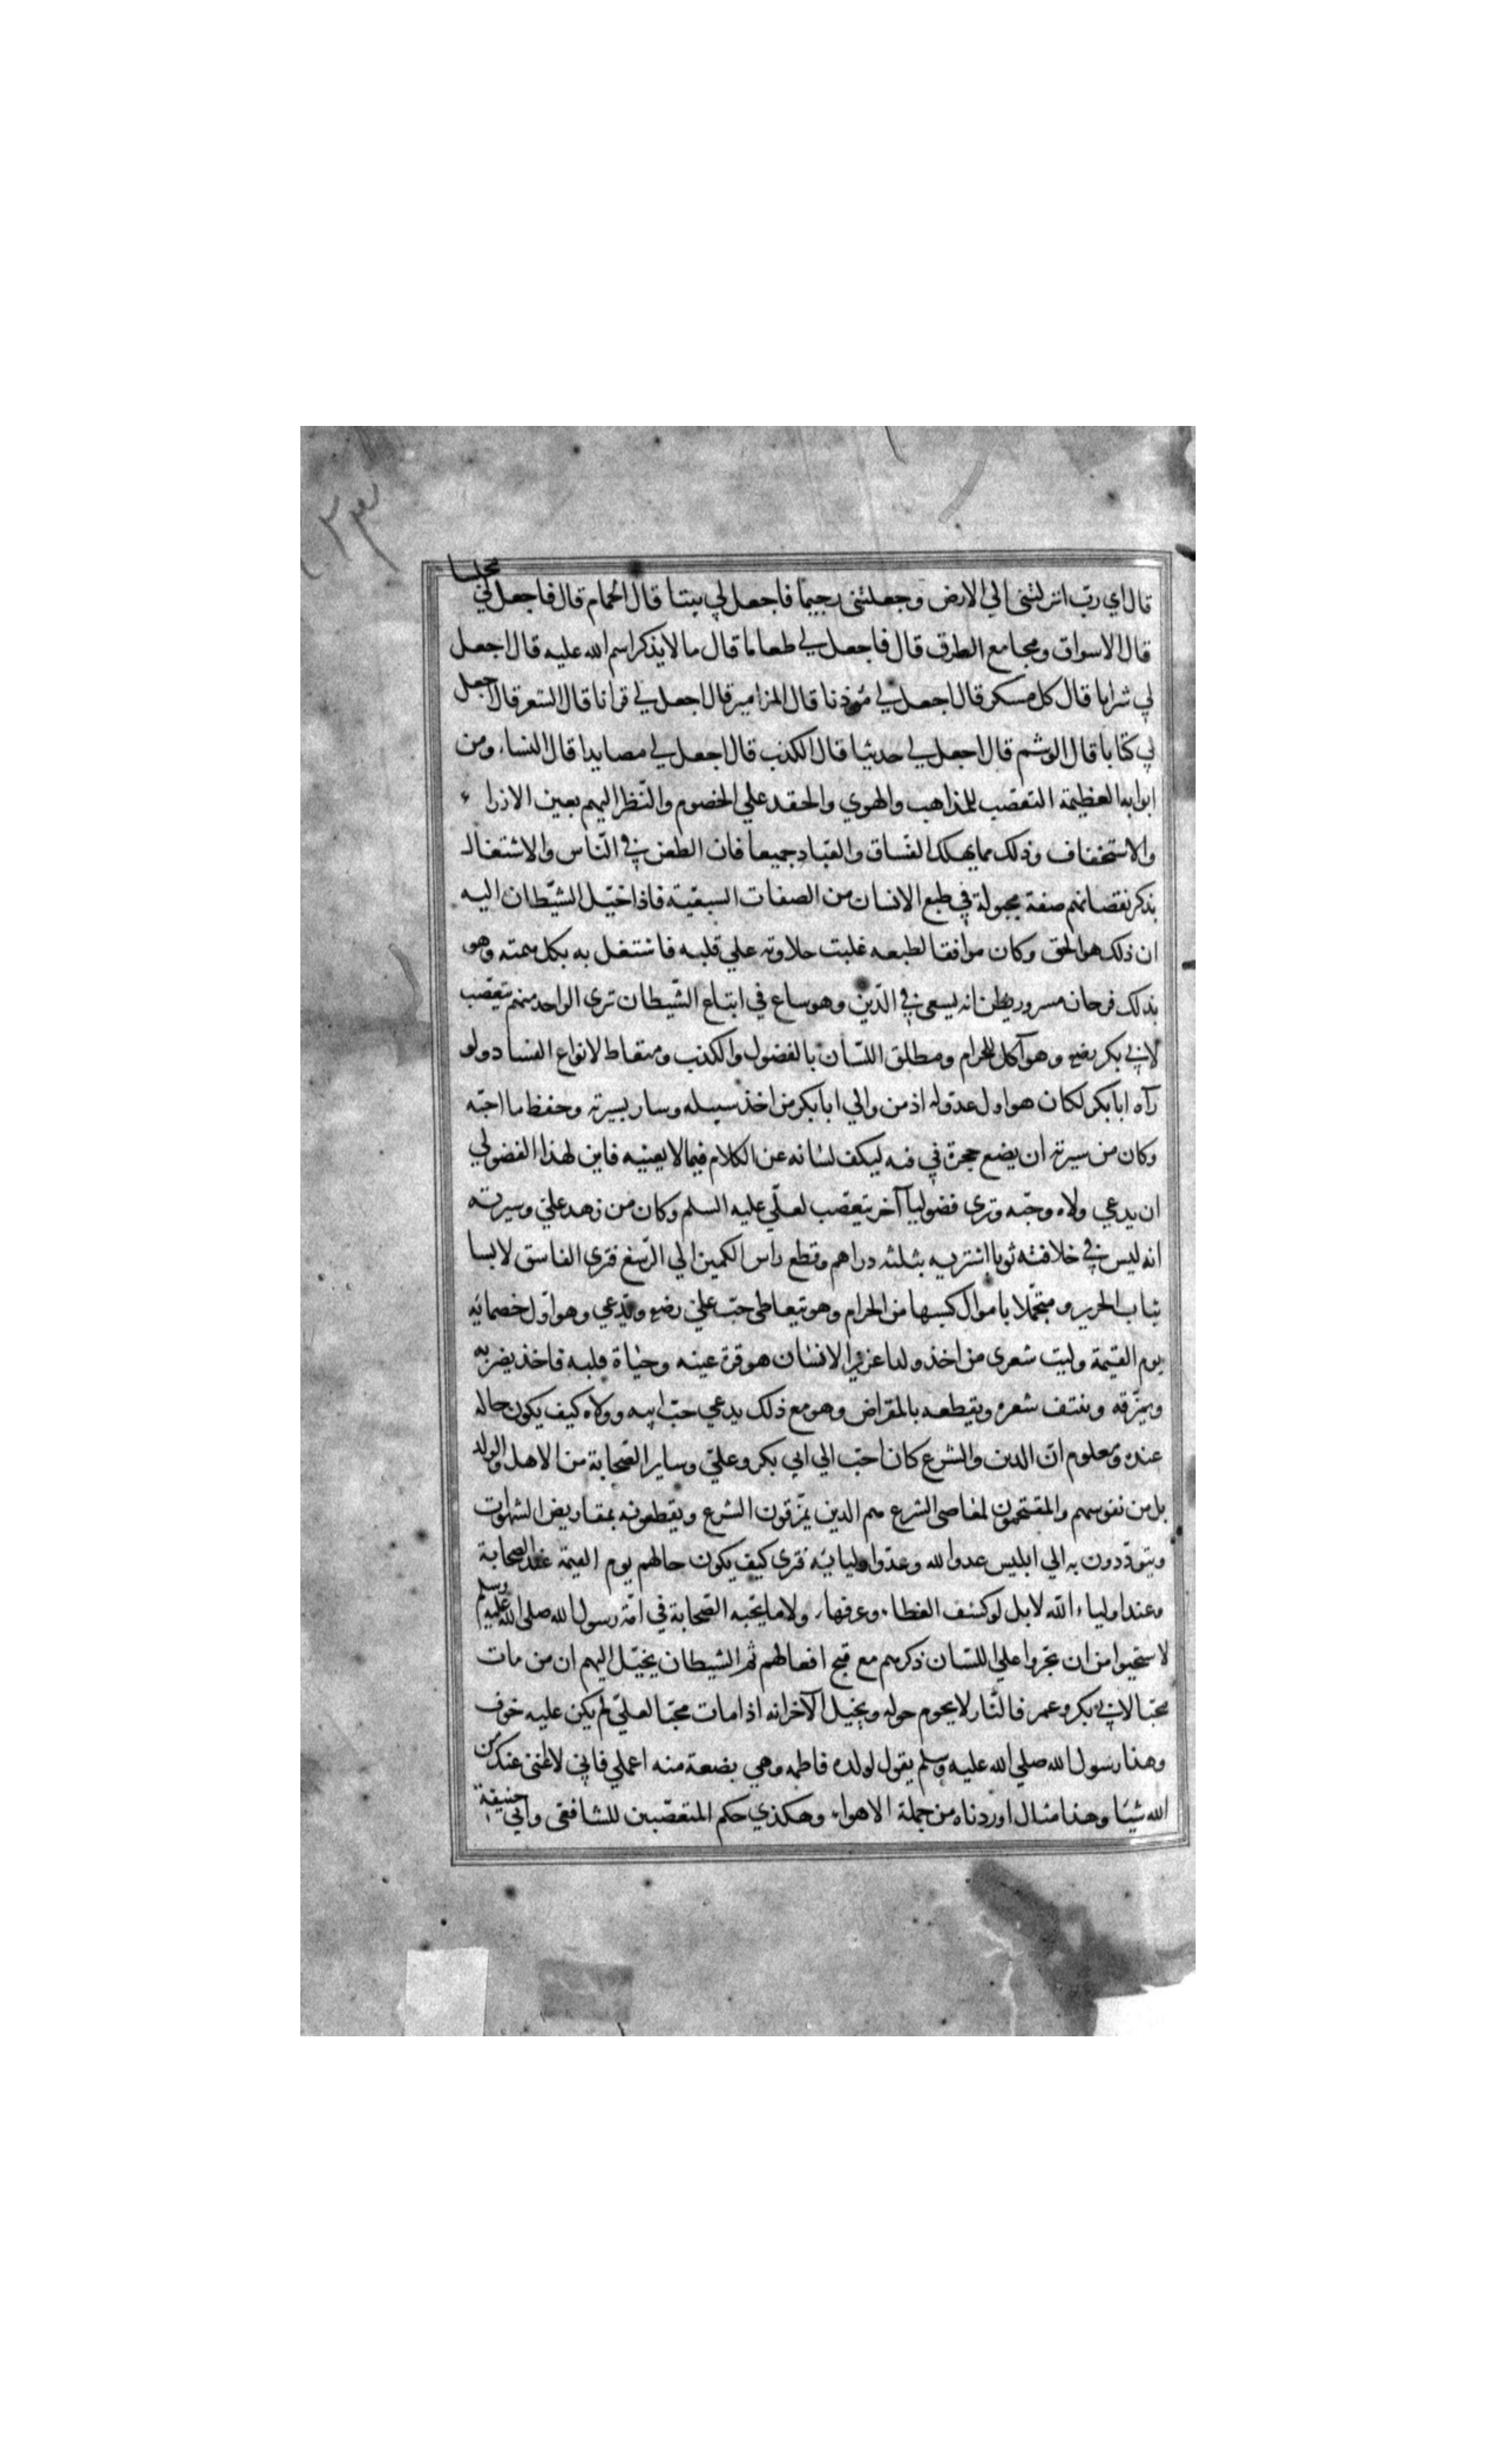 قال اي ربّ انزلتنى الي الارض وجعلتنى رجيما فاجعل لي بيتا قال الحمام قال فاجعل لي مجلسا
قال الاسواق ومجامع الطرق قال فاجعل لي طعاما قال ما لا يذكر اسم الله عليه قال اجعل
لي شرابا قال كل مسكر قال اجعل لي مؤذنا قال المزامير قال اجعل لي قرانا قال الشعر قال اجعل
لي كتابا قال الوشم قال اجعل لي حديثا قال الكذب قال اجعل لي مصايدا قال النساء ومن
ابوابه العظيمة التعصّب للمذاهب والهوي والحقد علي الخصوم والنّظر اليهم بعين الازراء
والاستخفاف وذلك مما يهلك الفسّاق والعبّاد جميعا فان الطعن في النّاس والاشتغال
بذكر نقصانهم صفة مجبولة في طبع الانسان من الصفات السبعيّة فاذا خيّل الشيّطان اليه
ان ذلك هو الحق وكان موافقا لطبعه غلبت حلاوته علي قلبه فاشتغل به بكل همته وهو
بذلك فرحان مسرور يظن انه يسعى في الدّين وهو ساع في اتباع الشّيطان ترى الواحد منهم يتعصّب
لابي بكر رضه وهو آكل للحرام ومطلق اللسان بالفضول والكذب ومتعاط لانواع الفساد ولو
رآه ابا بكر لكان هو اول عدوله اذ من والي ابا بكر من اخذ سبيله وسار بسيرته وحفظ ما احبّه
وكان من سيرته ان يضع حجرة في فيه ليكف لسانه عن الكلام فيما لا يعنيه فاين لهذا الفضولي
ان يدعي ولاه وحبّه وترى فضوليا آخر يتعصّب لعليّ عليه السلم وكان من زهد علي وسيرته
انه لبس في خلافته ثوبا اشتريه بثلثه دراهم وقطع راس الكمين الي الرّسغ فترى الفاسق لابسا
ثياب الحرير ومتجمّلا باموال كسبها من الحرام وهو يتعاطى حبّ علي رضه ويدّعي وهو اوّل خصمائه
يوم القيمة وليت شعرى من اخذ ولدا عزيزا لانسان هو قرة عينه وحياة قلبه فاخذ يضربه
ويمزّقه وينتف شعره ويقطعه بالمقراض وهو مع ذلك يدعي حبّ ابيه وولاه كيف يكون حاله
عنده ومعلوم انّ الدين والشرع كان احبّ الي ابي بكر وعليّ وساير الصّحابة من الاهل والولد
بل من نفوسهم والمقتحمون لمعاصى الشرع هم الذين يمزّقون الشرع ويقطعونه بمقاريض الشهوات
ويتودّدون به الي ابليس عدو الله وعدو اوليائه فترى كيف يكون حالهم يوم القيمة عند الصحابة
وعند اولياء الله لا بل لو كشف الغطاء وعرفها ولا ما يحبّه الصّحابة في امّة رسول الله صلى الله عليه وسلم
لاستحيوا من ان يجروا علي اللسان ذكرهم مع قبح افعالهم ثم الشيطان يخيّل اليهم ان من مات
محبّا لابي بكر وعمر فالنّار لا يحوم حوله ويخيل الآخر انه اذا مات محبّا لعليّ لم يكن عليه خوف
وهذا رسول الله صلي الله عليه وسلم يقول لولده فاطمه وهي بضعة منه اعملي فاني لا اغنى عنك من
الله شيئا وهذا مثال اوردناه من جملة الاهواء وهكذي حكم المتعصّبين للشافعى وابي حنيفة